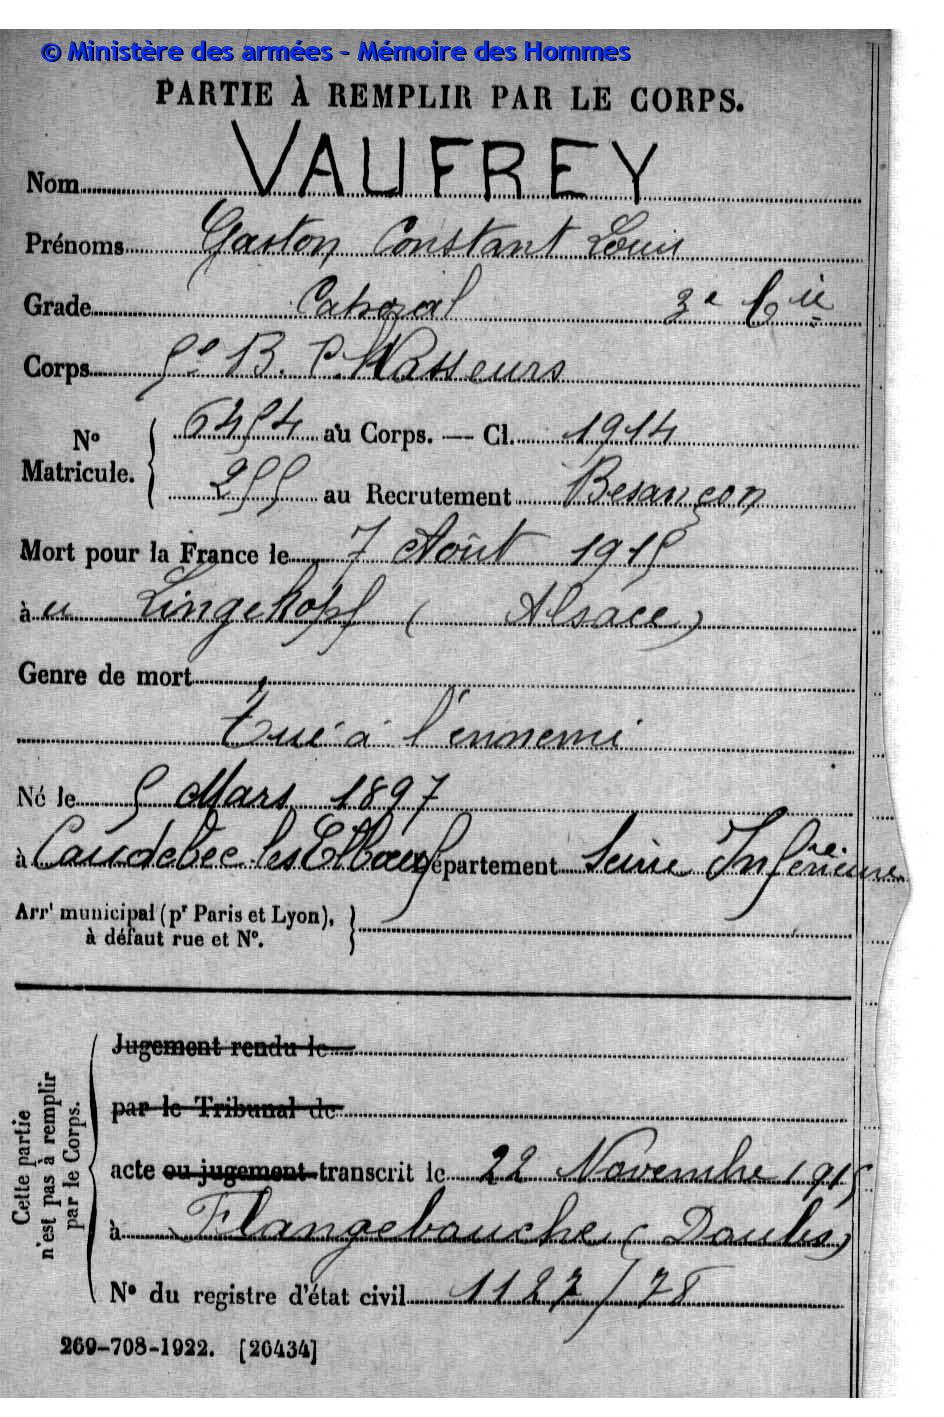 © Ministère des armées - Mémoire des Hommes
PARTIE À REMPLIR PAR LE CORPS.
Nom VAUFREY
Prénoms Gaston Constant Louis
Grade Caporal 3e Cie
Corps 5e B. Chasseurs
No Matricule. 6454 au Corps. — Cl. 1914
255 au Recrutement Besançon
Mort pour la France le 7 Août 1915
à u Lingekopf (Alsace)
Genre de mort
Tué à l'ennemi
Né le 5 Mars 1897
à Caudebec-les-Elbeuf Département Seine Inférieure
Arrt municipal (pr Paris et Lyon),
à défaut rue et No.
Cette partie n'est pas à remplir par le Corps.
Jugement rendu le
par le Tribunal de
acte ou jugement transcrit le 22 Novembre 1915
à Flangebouche (Doubs)
No du registre d'état civil 1127/78
269-708-1922. [26434]